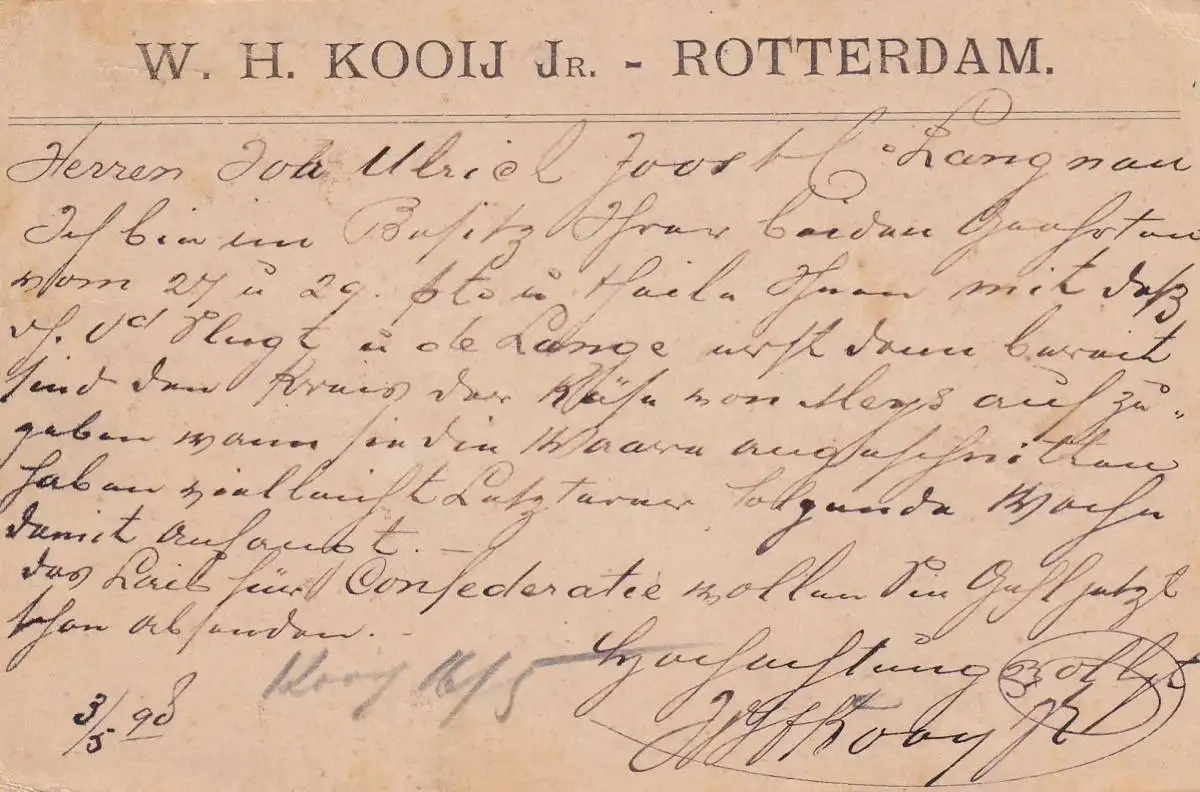 W. H. KOOIJ JR. - ROTTERDAM.
Herren Joh Ulrich Joost & Co Langnau
Ich bin im Besitz Ihrer beiden Geehrten
vom 27 u 29. pto u theile Ihnen mit daß
vd Plugt u de Lange erst dann bereit
sind den Preis der Käse von Meys aufzu"
geben wann sie die Waare angeschnitten
haben vielleicht Letzterer folgende Woche
damit anfangt. —
das Laib für Confederatie wollen Sie Gefl jetzt
schon absenden. -
Kooij 16/5
Hochachtungsvollst
WHKooy JR
3/5 98